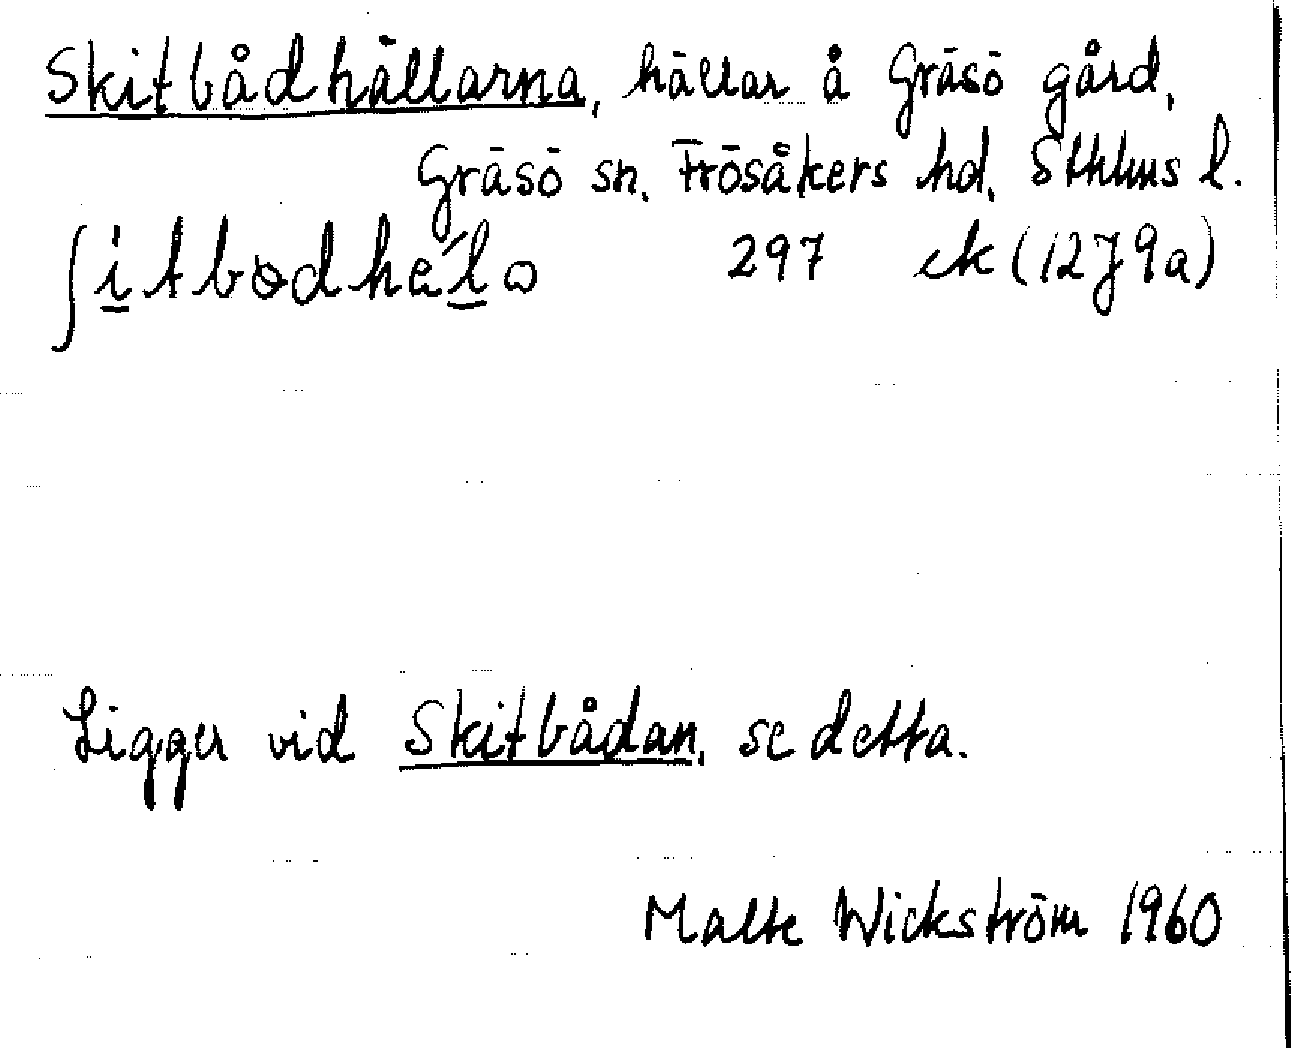 Skitbådhällarna, hällar å Gräsö gård,
Gräsö sn. Frösåkers hd. Sthlms l.
297 ek (12J9a)
Ligger vid Skitbådan, se detta.
Malte Wickström 1960